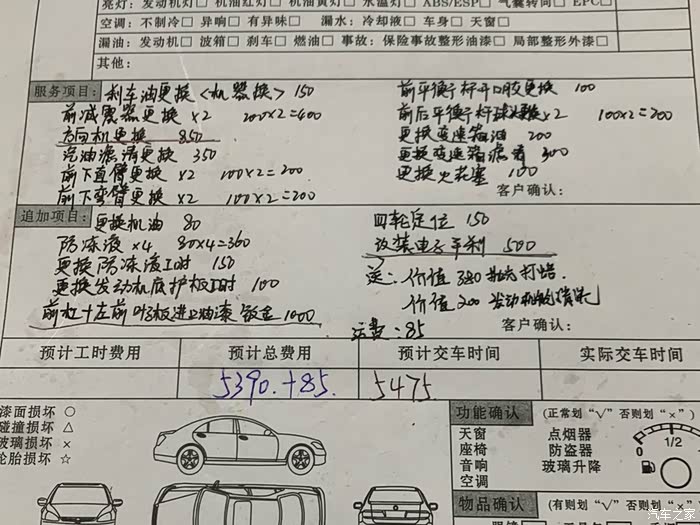 亮灯: 发动机灯□ 机油红灯□ 机油黄灯□ 水温灯□ ABS/ESP□ 气囊转向□ EPC□
空调: 不制冷□ 异响□ 有异味□ 漏水: 冷却液□ 车身□ 天窗□
漏油: 发动机□ 波箱□ 刹车□ 燃油□ 事故: 保险事故整形油漆□ 局部整形外漆□
其他:
服务项目: 刹车油更换<机器换> 150
前平衡杆开口胶更换 100
前减震器更换 ×2 200×2=400
前后平衡杆球头更换 ×2 100×2=200
方向机更换 850
更换变速箱油 200
汽油滤清更换 350
更换变速箱滤清 300
前下直臂更换 ×2 100×2=200
更换火花塞 100
前下弯臂更换 ×2 100×2=200
客户确认:
追加项目: 更换机油 80
四轮定位 150
防冻液 ×4 80×4=360
改装电子手刹 500
更换防冻液工时 150
送: 价值380抛光打蜡.
更换发动机底护板工时 100
价值200 发动机舱清洗
前杠+左前叶子板油漆 钣金 1000
运费: 85
客户确认:
预计工时费用 预计总费用 预计交车时间 实际交车时间
5390.+85. 5475
漆面损坏 ○
碰撞损坏 △
玻璃损坏 ×
轮胎损坏 ☆
功能确认 (正常划“√” 否则划“×”)
天窗 点烟器
座椅 防盗器
音响 玻璃升降
空调
0 1/2
物品确认 (有则划“√” 否则划“×”
汽车之家